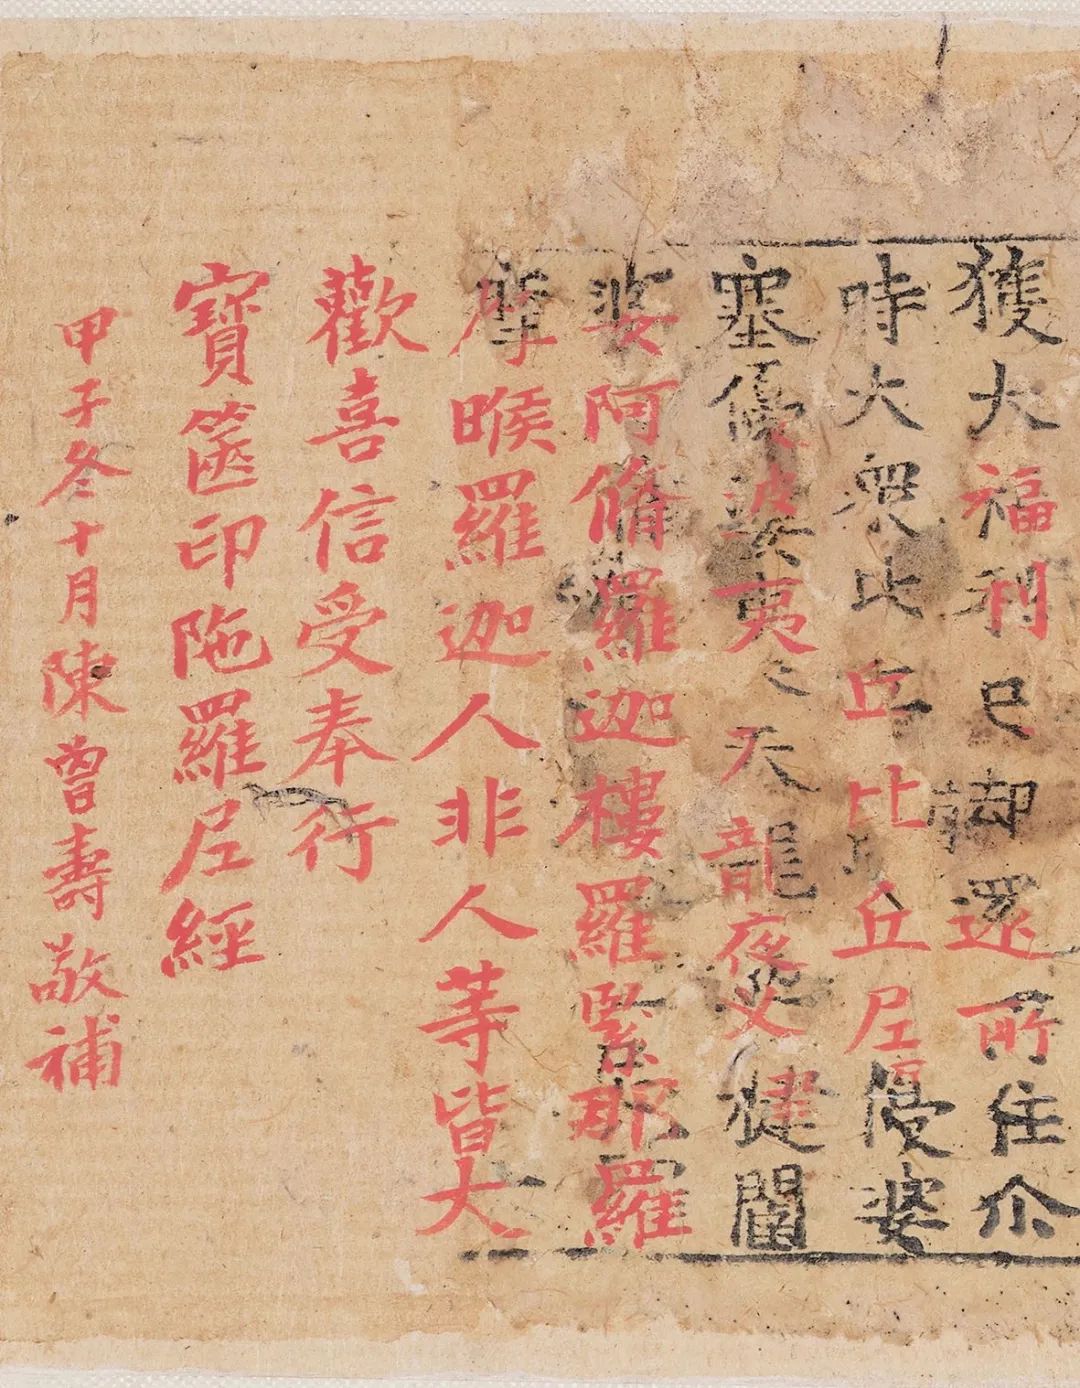 獲大福利已却還所住尒
時大衆比丘比丘尼優婆
塞優婆夷天龍夜叉揵闥
婆阿脩羅迦樓羅緊那羅
摩睺羅迦人非人等皆大
歡喜信受奉行
寶篋印陁羅尼經
甲子冬十月陳曾壽敬補